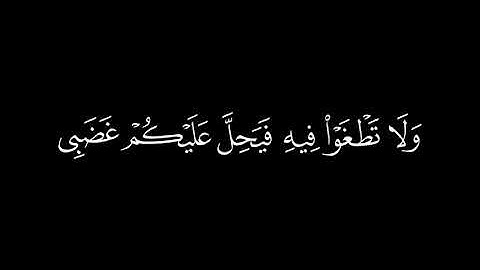 وَلَا تَطۡغَوۡاْ فِيهِ فَيَحِلَّ عَلَيۡكُمۡ غَضَبِي